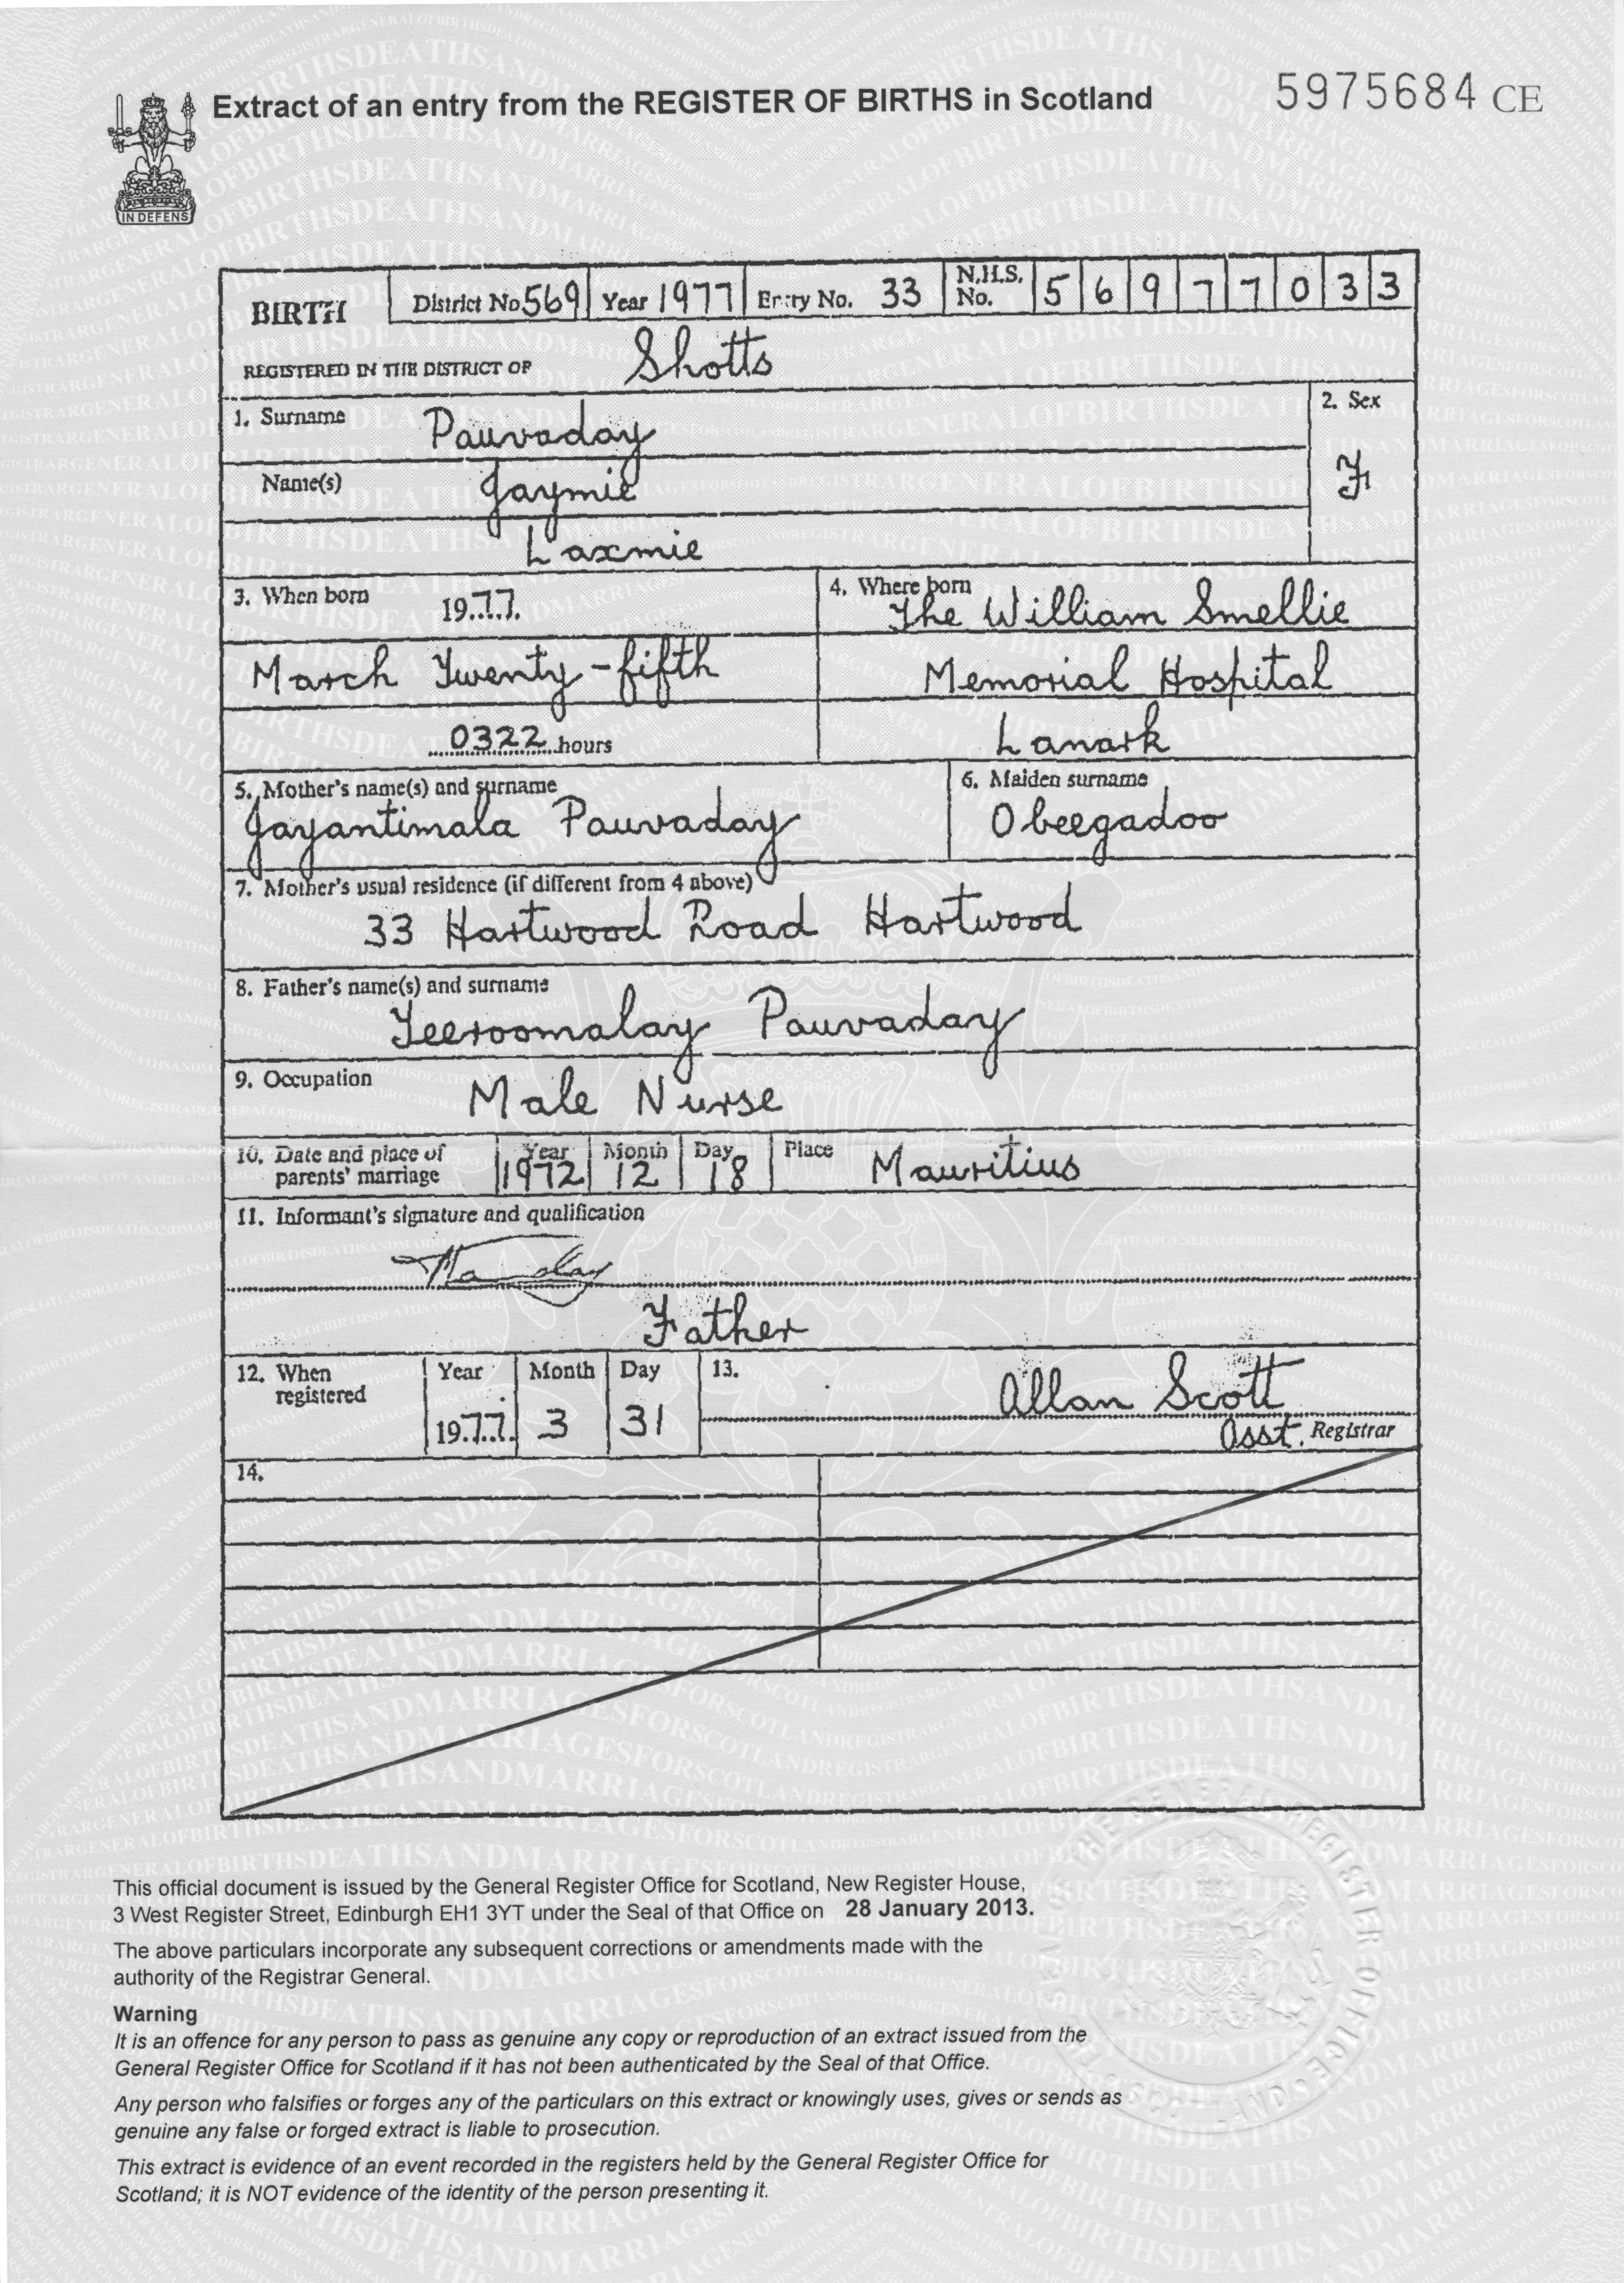 Extract of an entry from the REGISTER OF BIRTHS in Scotland
5975684 CE
IN DEFENS
BIRTH District No 569 Year 1977 Entry No. 33 N.H.S. No. 5 6 9 7 7 0 3 3
REGISTERED IN THE DISTRICT OF Shotts
1. Surname Pauvaday 2. Sex
Name(s) Jaymie F
Laxmie
3. When born 1977 4. Where born The William Smellie
March Twenty-fifth Memorial Hospital
0322 hours Lanark
5. Mother's name(s) and surname 6. Maiden surname
Jayantimala Pauvaday Obeegadoo
7. Mother's usual residence (if different from 4 above)
33 Hartwood Road Hartwood
8. Father's name(s) and surname
Teeroomalay Pauvaday
9. Occupation Male Nurse
10. Date and place of parents' marriage Year 1972 Month 12 Day 18 Place Mauritius
11. Informant's signature and qualification
Father
12. When registered Year 1977 Month 3 Day 31 13. Allan Scott
Asst. Registrar
14.
This official document is issued by the General Register Office for Scotland, New Register House,
3 West Register Street, Edinburgh EH1 3YT under the Seal of that Office on 28 January 2013.
The above particulars incorporate any subsequent corrections or amendments made with the
authority of the Registrar General.
Warning
It is an offence for any person to pass as genuine any copy or reproduction of an extract issued from the
General Register Office for Scotland if it has not been authenticated by the Seal of that Office.
Any person who falsifies or forges any of the particulars on this extract or knowingly uses, gives or sends as
genuine any false or forged extract is liable to prosecution.
This extract is evidence of an event recorded in the registers held by the General Register Office for
Scotland; it is NOT evidence of the identity of the person presenting it.